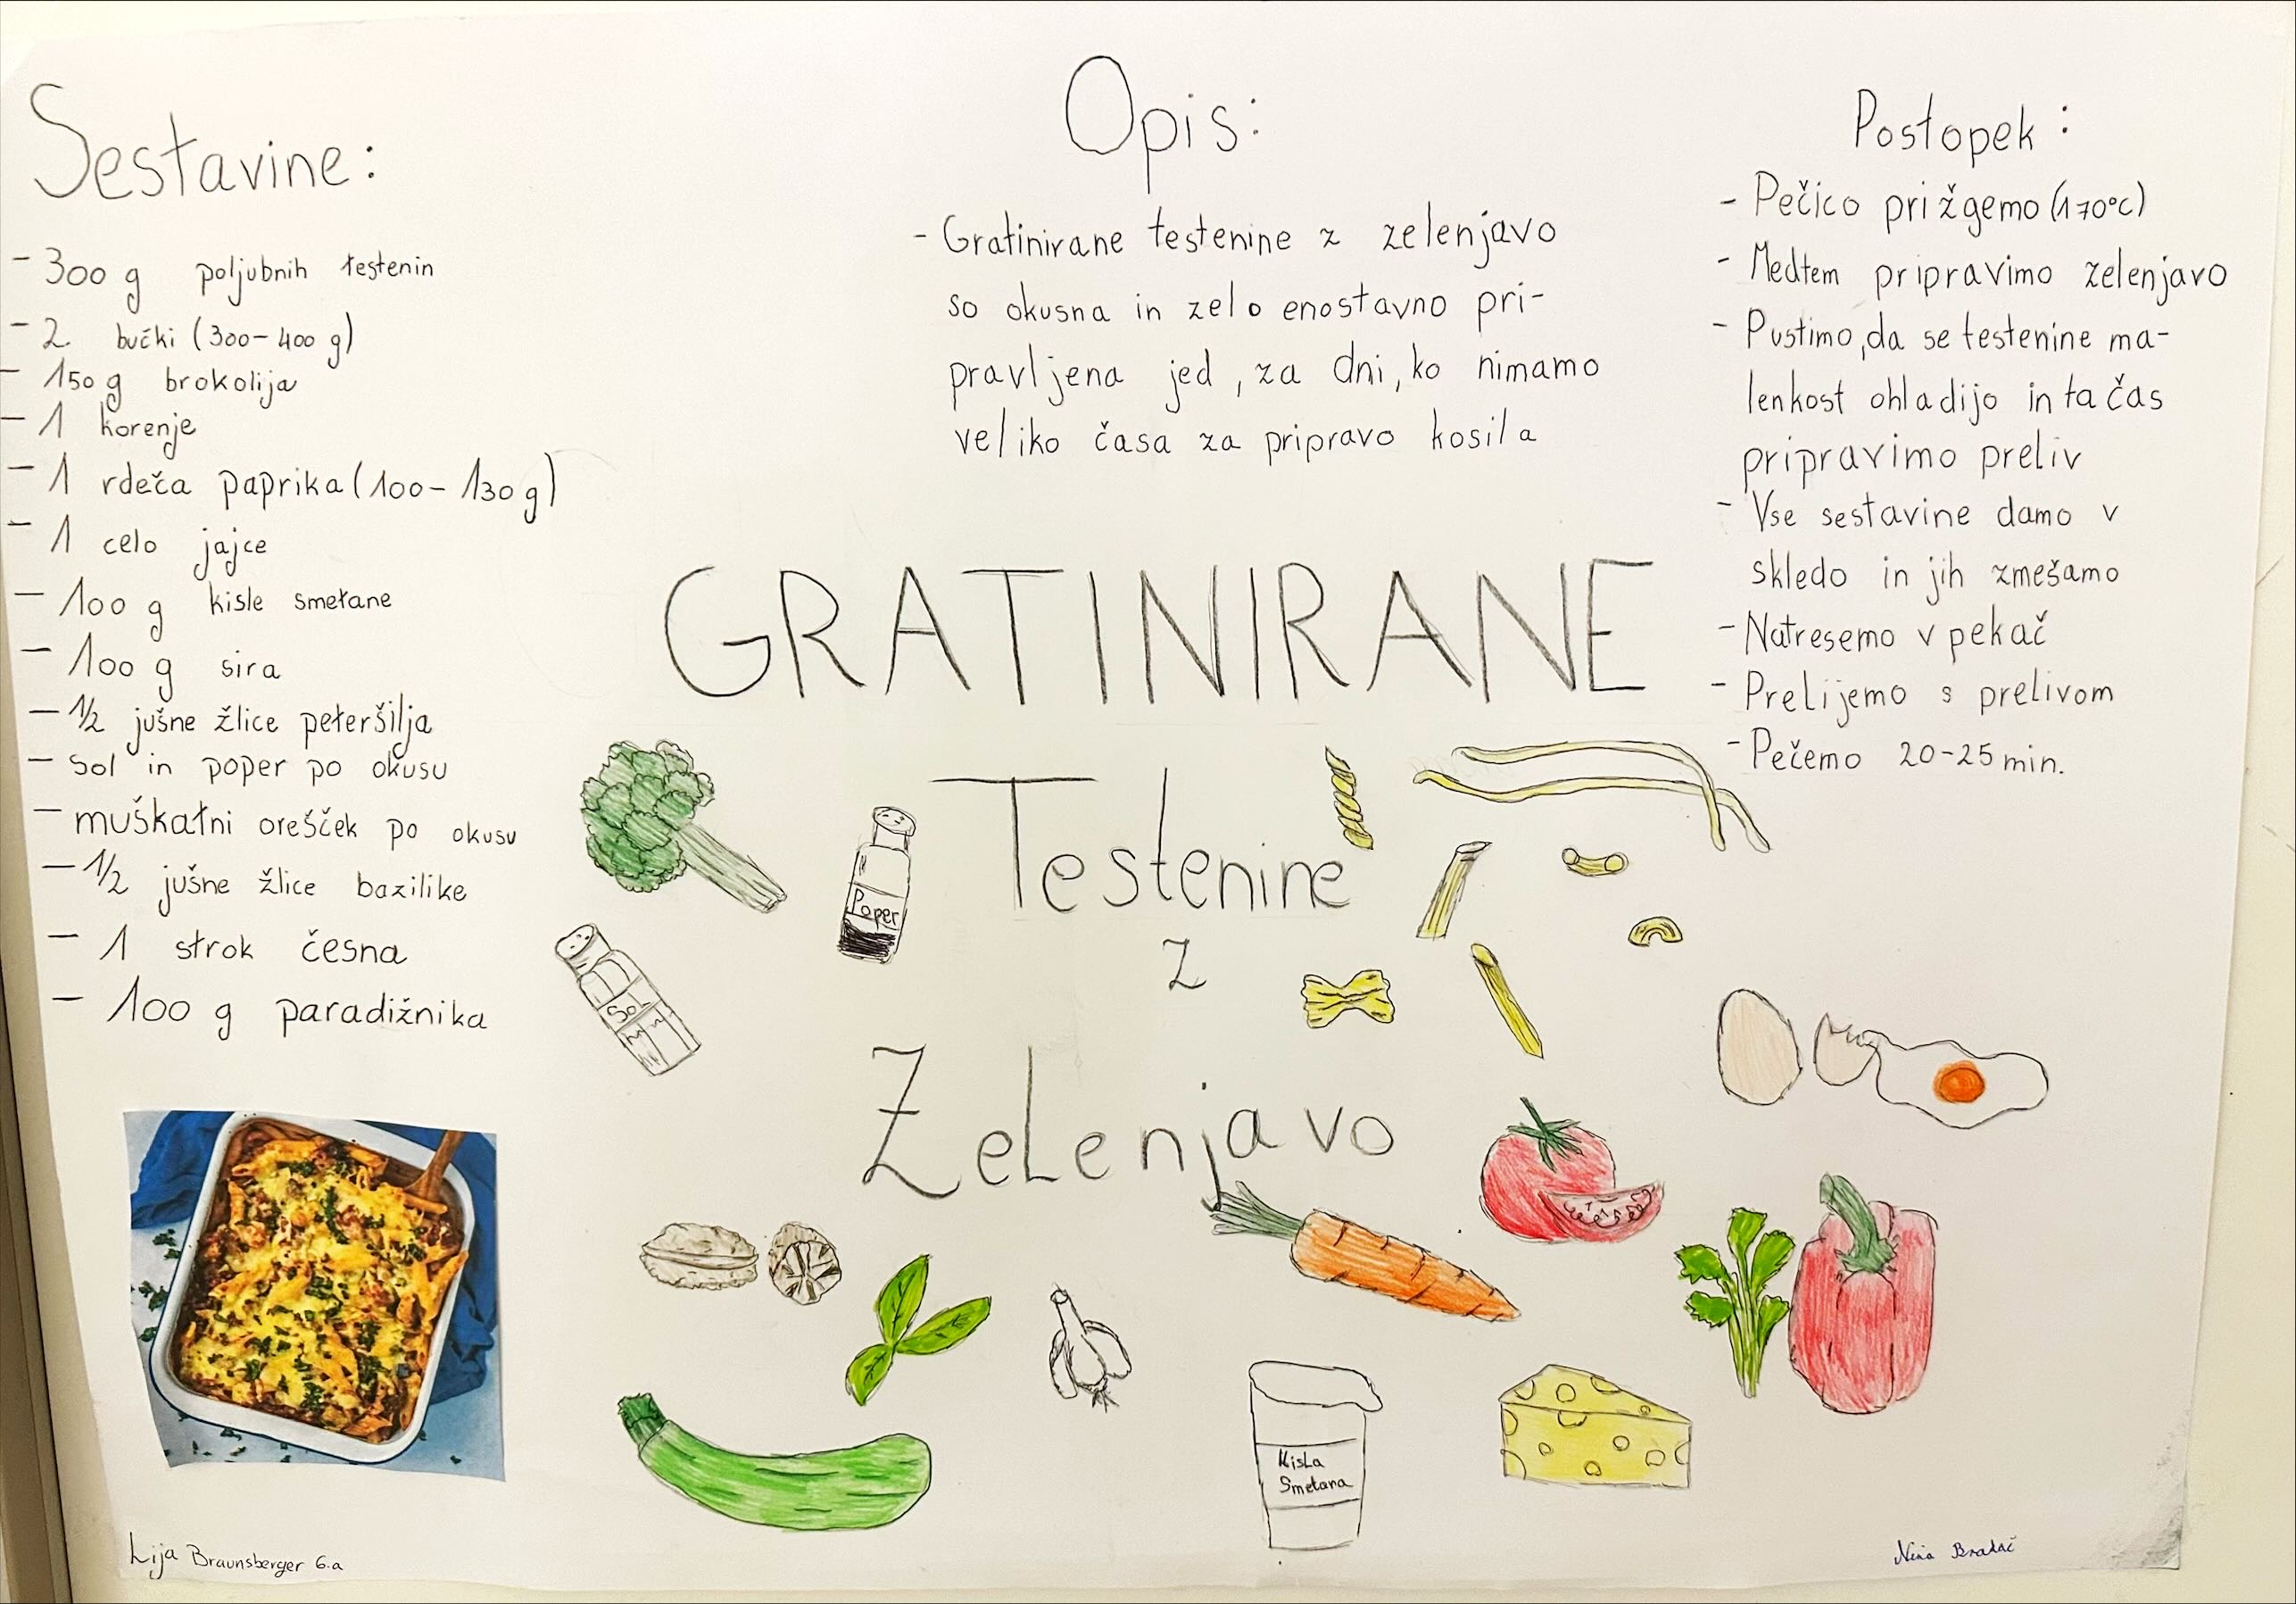 Sestavine:
- 300 g poljubnih testenin
- 2. bučki (300-400 g)
- 150g brokolija
- 1 korenje
- 1 rdeča paprika (100-130g)
- 1 celo jajce
- 100 g kisle smetane
- 100 g sira
- 1/2 jušne žlice peteršilja
- sol in poper po okusu
- muškatni orešček po okusu
- 1/2 jušne žlice bazilike
- 1 strok česna
- 100 g paradižnika
Opis:
- Gratinirane testenine z zelenjavo
so okusna in zelo enostavno pri-
pravljena jed, za dni, ko nimamo
veliko časa za pripravo kosila
Postopek:
- Pečico prižgemo (170°C)
- Medtem pripravimo zelenjavo
- Pustimo, da se testenine ma-
lenkost ohladijo in ta čas
pripravimo preliv
- Vse sestavine damo v
skledo in jih zmešamo
- Natresemo v pekač
- Prelijemo s prelivom
- Pečemo 20-25 min.
GRATINIRANE
Testenine
z
Zelenjavo
Poper
Sol
Kisla
Smetana
Lija Braunsberger 6.a
Nina Bradač